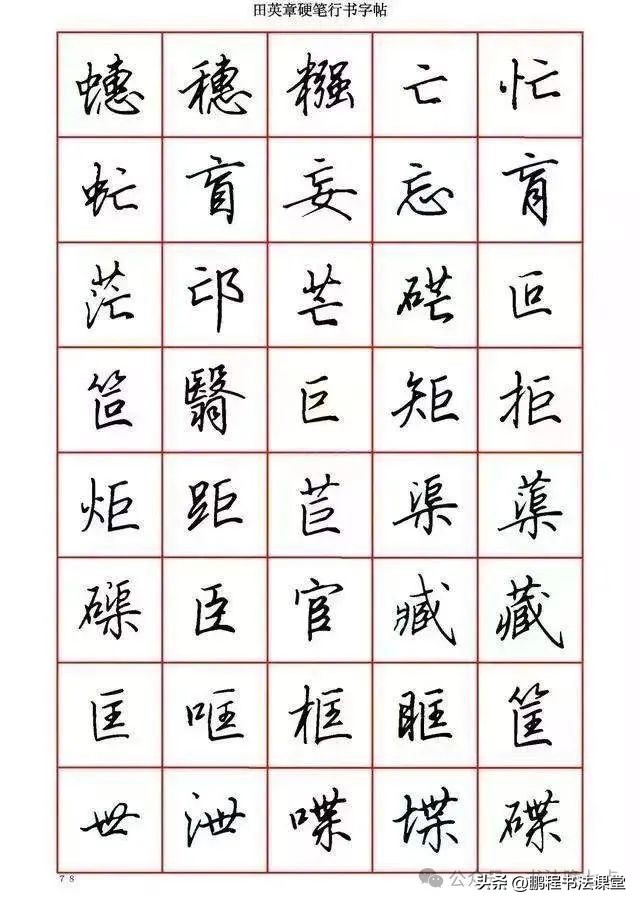 田英章硬笔行书字帖
蟪 穗 糨 亡 忙
虻 盲 妄 忘 肓
茫 邙 芒 硭 叵
笸 翳 巨 矩 拒
炬 距 苣 渠 蕖
磲 臣 宦 臧 藏
匡 哐 框 眶 筐
世 泄 喋 堞 碟
78
头条 @鹏程书法课堂